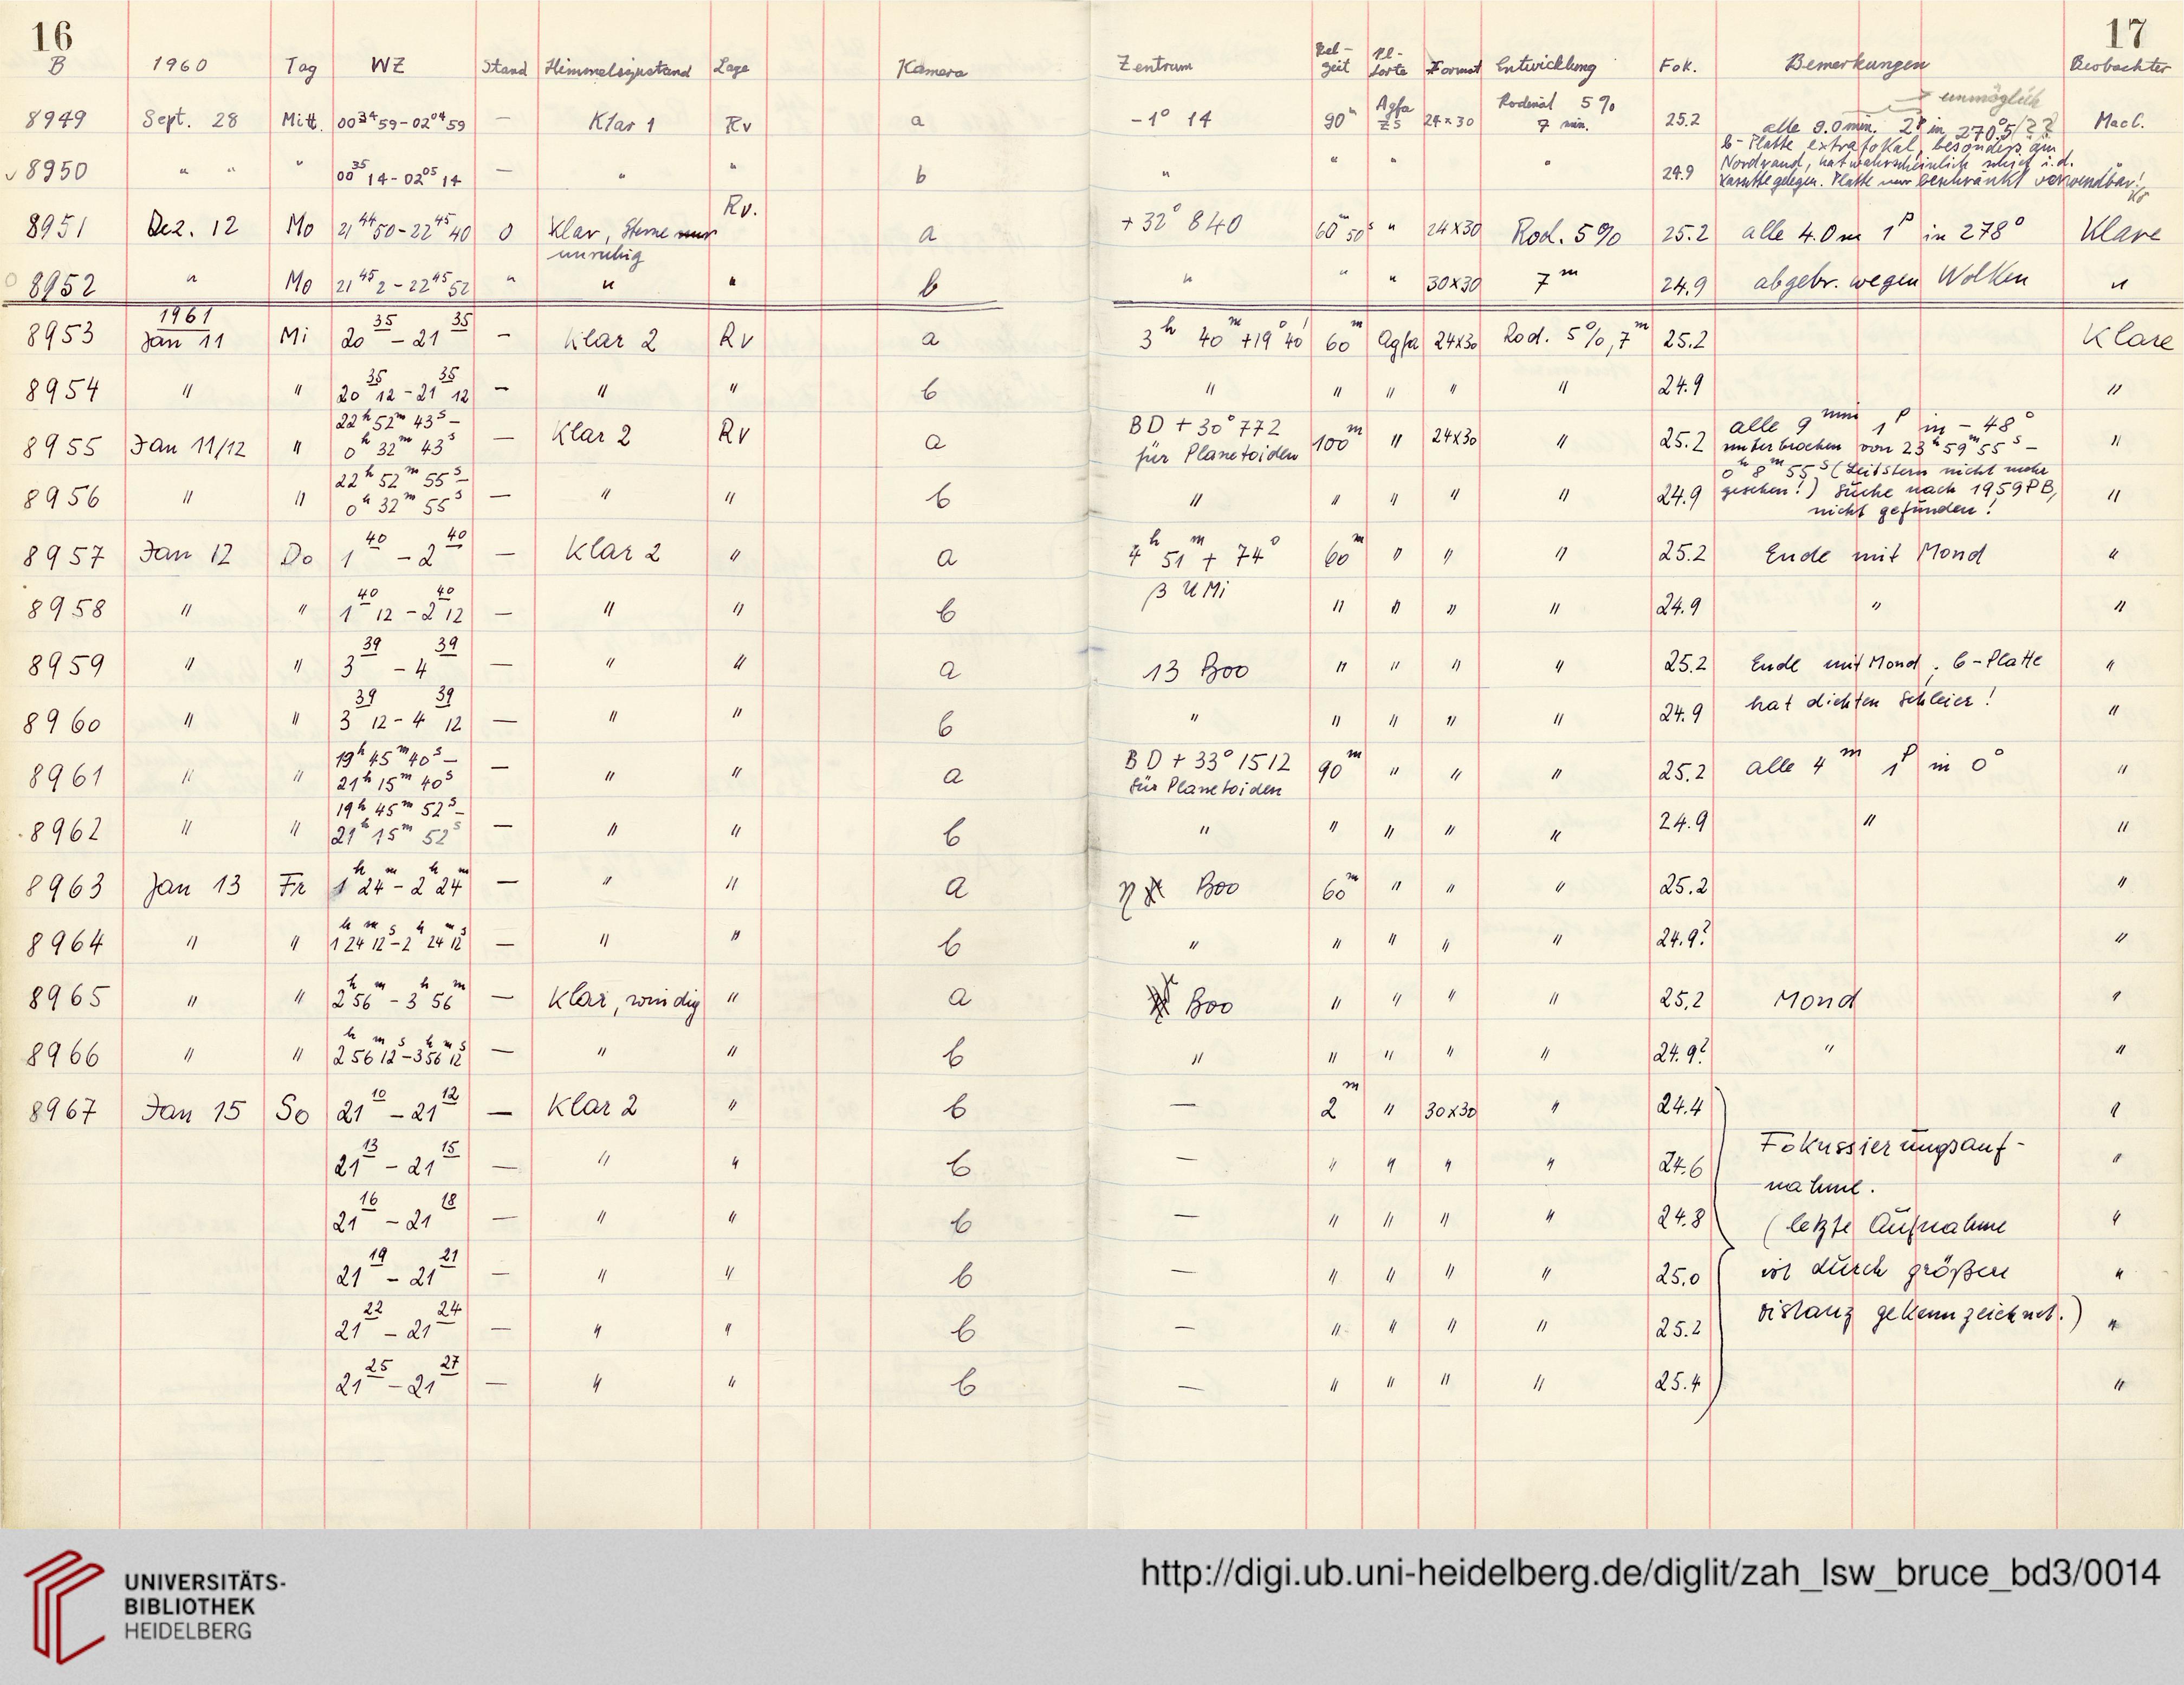 16 17
B 1960 Tag WZ Stand Himmelszustand Lage Kamera Zentrum Bel-zeit Pl-sorte Format Entwicklung Fok. Bemerkungen Beobachter
unmöglich
8949 Sept. 28 Mitt. 00 34 59 - 02 04 59 — Klar 1 Rv a -1° 14 90m Agfa ZS 24×30 Rodinal 5% 7 min. 25.2 alle 9.0 min. 2P in 270°5/?? Macl.
8950 " " " 00 35 14 - 02 05 14 — " " b " " " " 24.9 b-Platte extrafokal, besonders am
Nordrand, hat wahrscheinlich schief i.d.
Kassette gelegen. Platte nur beschränkt verwendbar!
8951 Dez. 12 Mo 21 44 50 - 22 45 40 0 Klar, Sterne unruhig Rv. a +32° 840 60m 50s " 24×30 Rod. 5% 25.2 alle 4.0m 1P in 278° Klare
8952 " Mo 21 45 2 - 22 45 52 " " " b " " " 30×30 7m 24.9 abgebr. wegen Wolken "
1961
8953 Jan 11 Mi 20 35 - 21 35 — Klar 2 Rv a 3h 40m +19° 40' 60m Agfa 24×30 Rod. 5%, 7m 25.2 Klare
8954 " " 20 35 12 - 21 35 12 — " " b " " " " " 24.9 "
8955 Jan 11/12 " 22h 52m 43s - 0h 32m 43s — Klar 2 Rv a BD + 30° 772 für Planetoiden 100m " 24×30 " 25.2 alle 9 min 1P in - 48° "
unterbrochen von 23h 59m 55s -
0h 8m 55s (Leitstern nicht mehr
8956 " " 22h 52m 55s - 0h 32m 55s — " " b " " " " " 24.9 gesehen!) Suche nach 1959 PB, "
nicht gefunden!
8957 Jan 12 Do 1 40 - 2 40 — Klar 2 " a 4h 51m + 74° 60m " " " 25.2 Ende mit Mond "
8958 " " 1 40 12 - 2 40 12 — " " b β UMi " " " " 24.9 " "
8959 " " 3 39 - 4 39 — " " a 13 Boo " " " " 25.2 Ende mit Mond, b-Platte "
8960 " " 3 39 12 - 4 39 12 — " " b " " " " " 24.9 hat dichten Schleier! "
8961 " " 19h 45m 40s - 21h 15m 40s — " " a BD + 33° 1512 für Planetoiden 90m " " " 25.2 alle 4m 1P in 0° "
8962 " " 19h 45m 52s - 21h 15m 52s — " " b " " " " " 24.9 " "
8963 Jan 13 Fr 1h 24m - 2h 24m — " " a η Boo 60m " " " 25.2 "
8964 " " 1h 24m 12s - 2h 24m 12s — " " b " " " " " 24.9? "
8965 " " 2h 56m - 3h 56m — Klar, windig " a Boo " " " " 25.2 Mond "
8966 " " 2h 56m 12s - 3h 56m 12s — " " b " " " " " 24.9? " "
8967 Jan 15 So 21 10 - 21 12 — Klar 2 " b — 2m " 30×30 " 24.4 "
21 13 - 21 15 — " " b — " " " " 24.6 Fokussierungsauf- "
nahme.
21 16 - 21 18 — " " b — " " " " 24.8 (letzte Aufnahme "
21 19 - 21 21 — " " b — " " " " 25.0 ist durch größere "
21 22 - 21 24 — " " b — " " " " 25.2 Distanz gekennzeichnet.) "
21 25 - 21 27 — " " b — " " " " 25.4 "
UNIVERSITÄTS-
BIBLIOTHEK
HEIDELBERG
http://digi.ub.uni-heidelberg.de/diglit/zah_lsw_bruce_bd3/0014